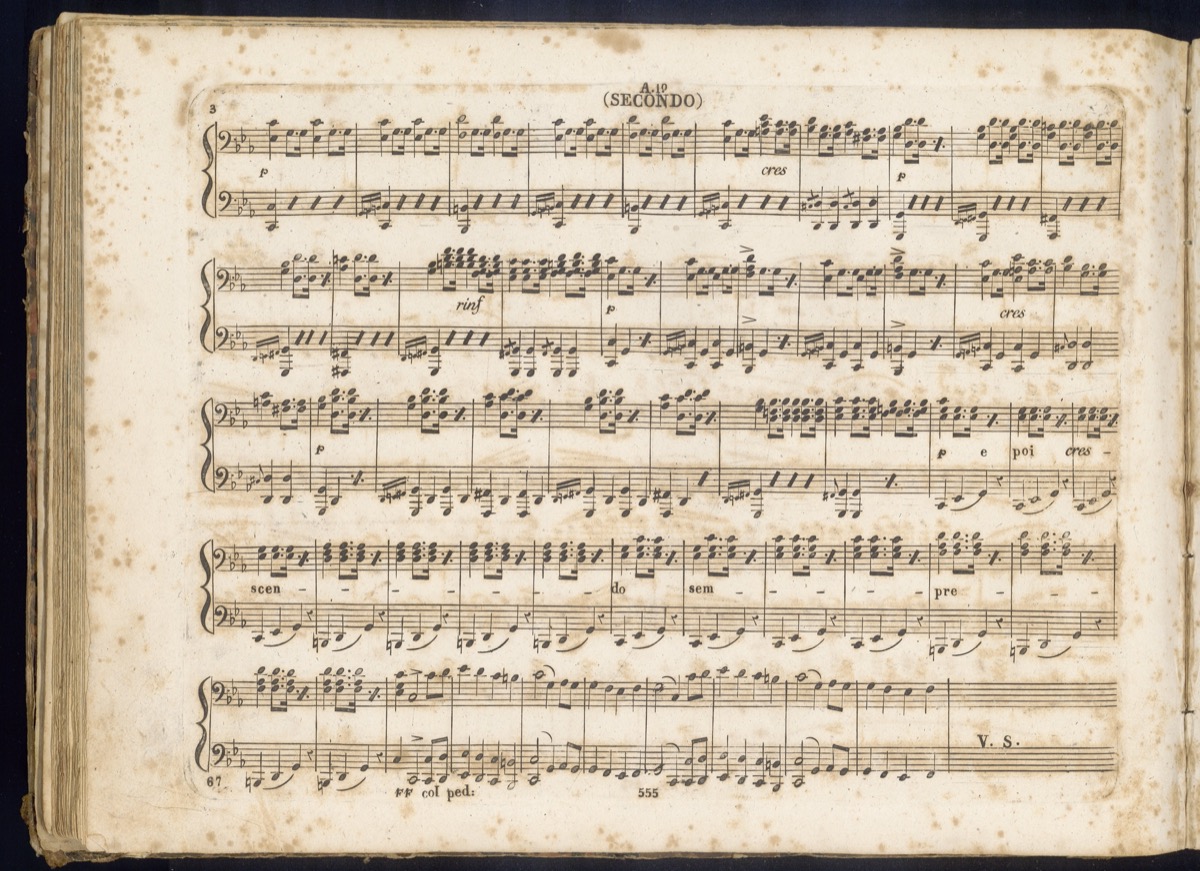 A.19
3
(SECONDO)
p cres p
rinf p cres
p p e poi cres -
scen - - - - - - - do sem - - - - - pre - - - -
V. S.
67 FF col ped: 555